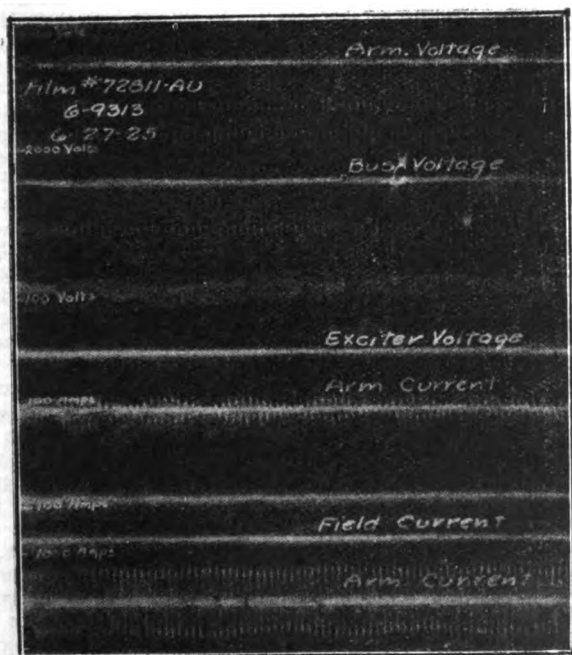 Arm. Voltage
Film #72811-AU
G-9313
6-27-25
2000 Volts
Bus Voltage
100 Volts
Exciter Voltage
Arm Current
100 Amps
100 Amps
Field Current
1000 Amps
Arm. Current